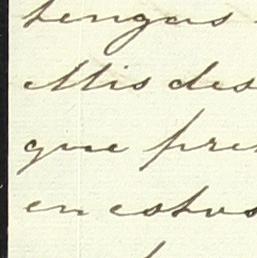 tengas
Mis des
que pre
en estos